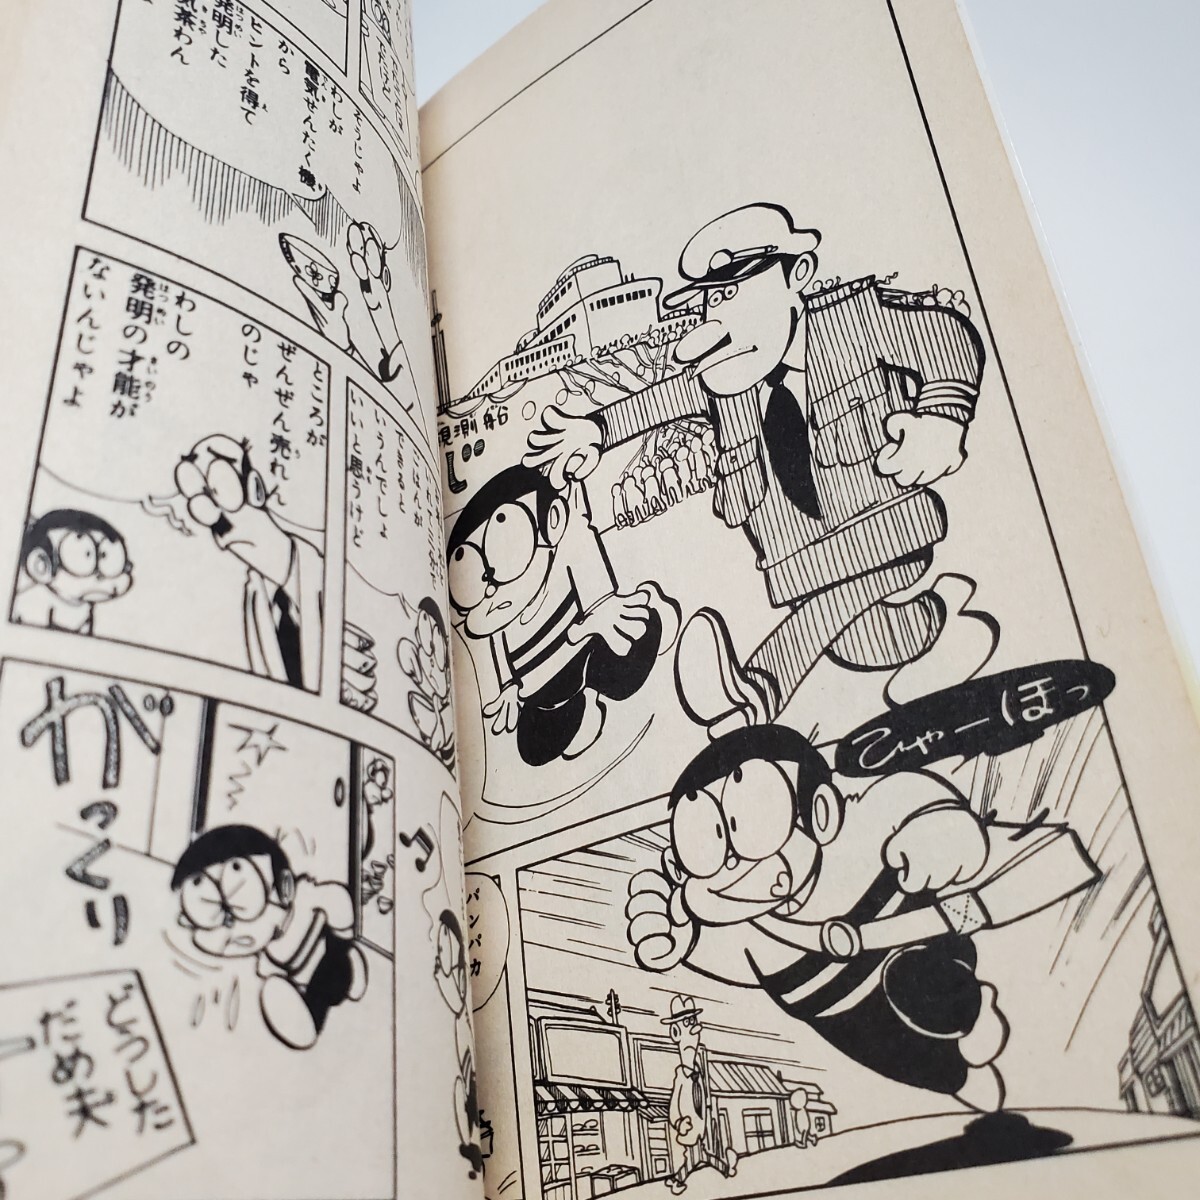 観測船
ひゃーほっ
パンパカ
そうじゃよ
わしが
電気せんたく機
から
ヒントを得て
発明した
気茶わん
ごはんが
できるなと
いうんでしょ
いいと思うけど
ところが
ぜんぜん売れん
のじゃ
わしの
発明の才能が
ないんじゃよ
がっくり
どうした
だめ夫